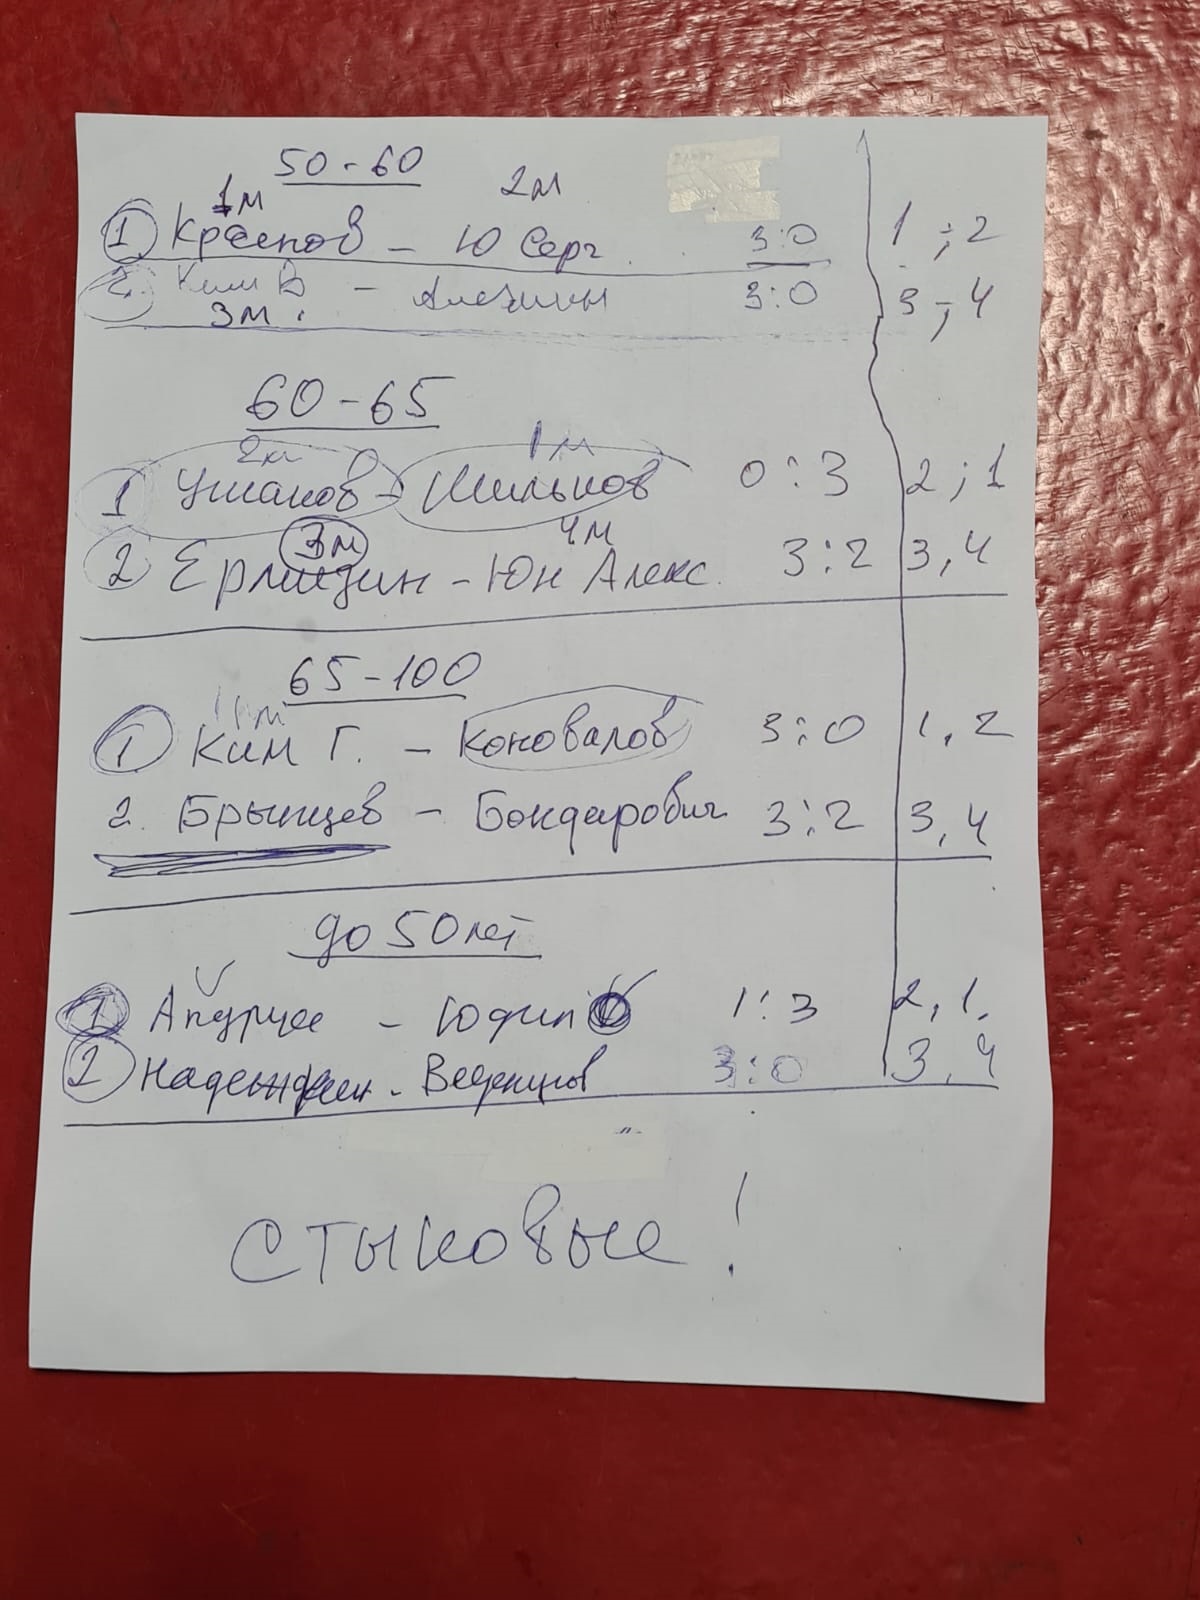 50-60
1м 2м
1. Краснов - Ю Серг. 3:0 1;2
2. Ким В - 3:0 3;4
3м.
60-65
2м 1м
1 Ушаков - Шильков 0:3 2;1
3м 4м
2 Ермизин - Юн Алекс. 3:2 3,4
65-100
1м
1 Ким Г. - Коновалов 3:0 1,2
2. Брынцев - Бондарович 3:2 3,4
до 50 лет
1 - Юдин 1:3 2,1.
2 - 3:0 3,4
стыковые!